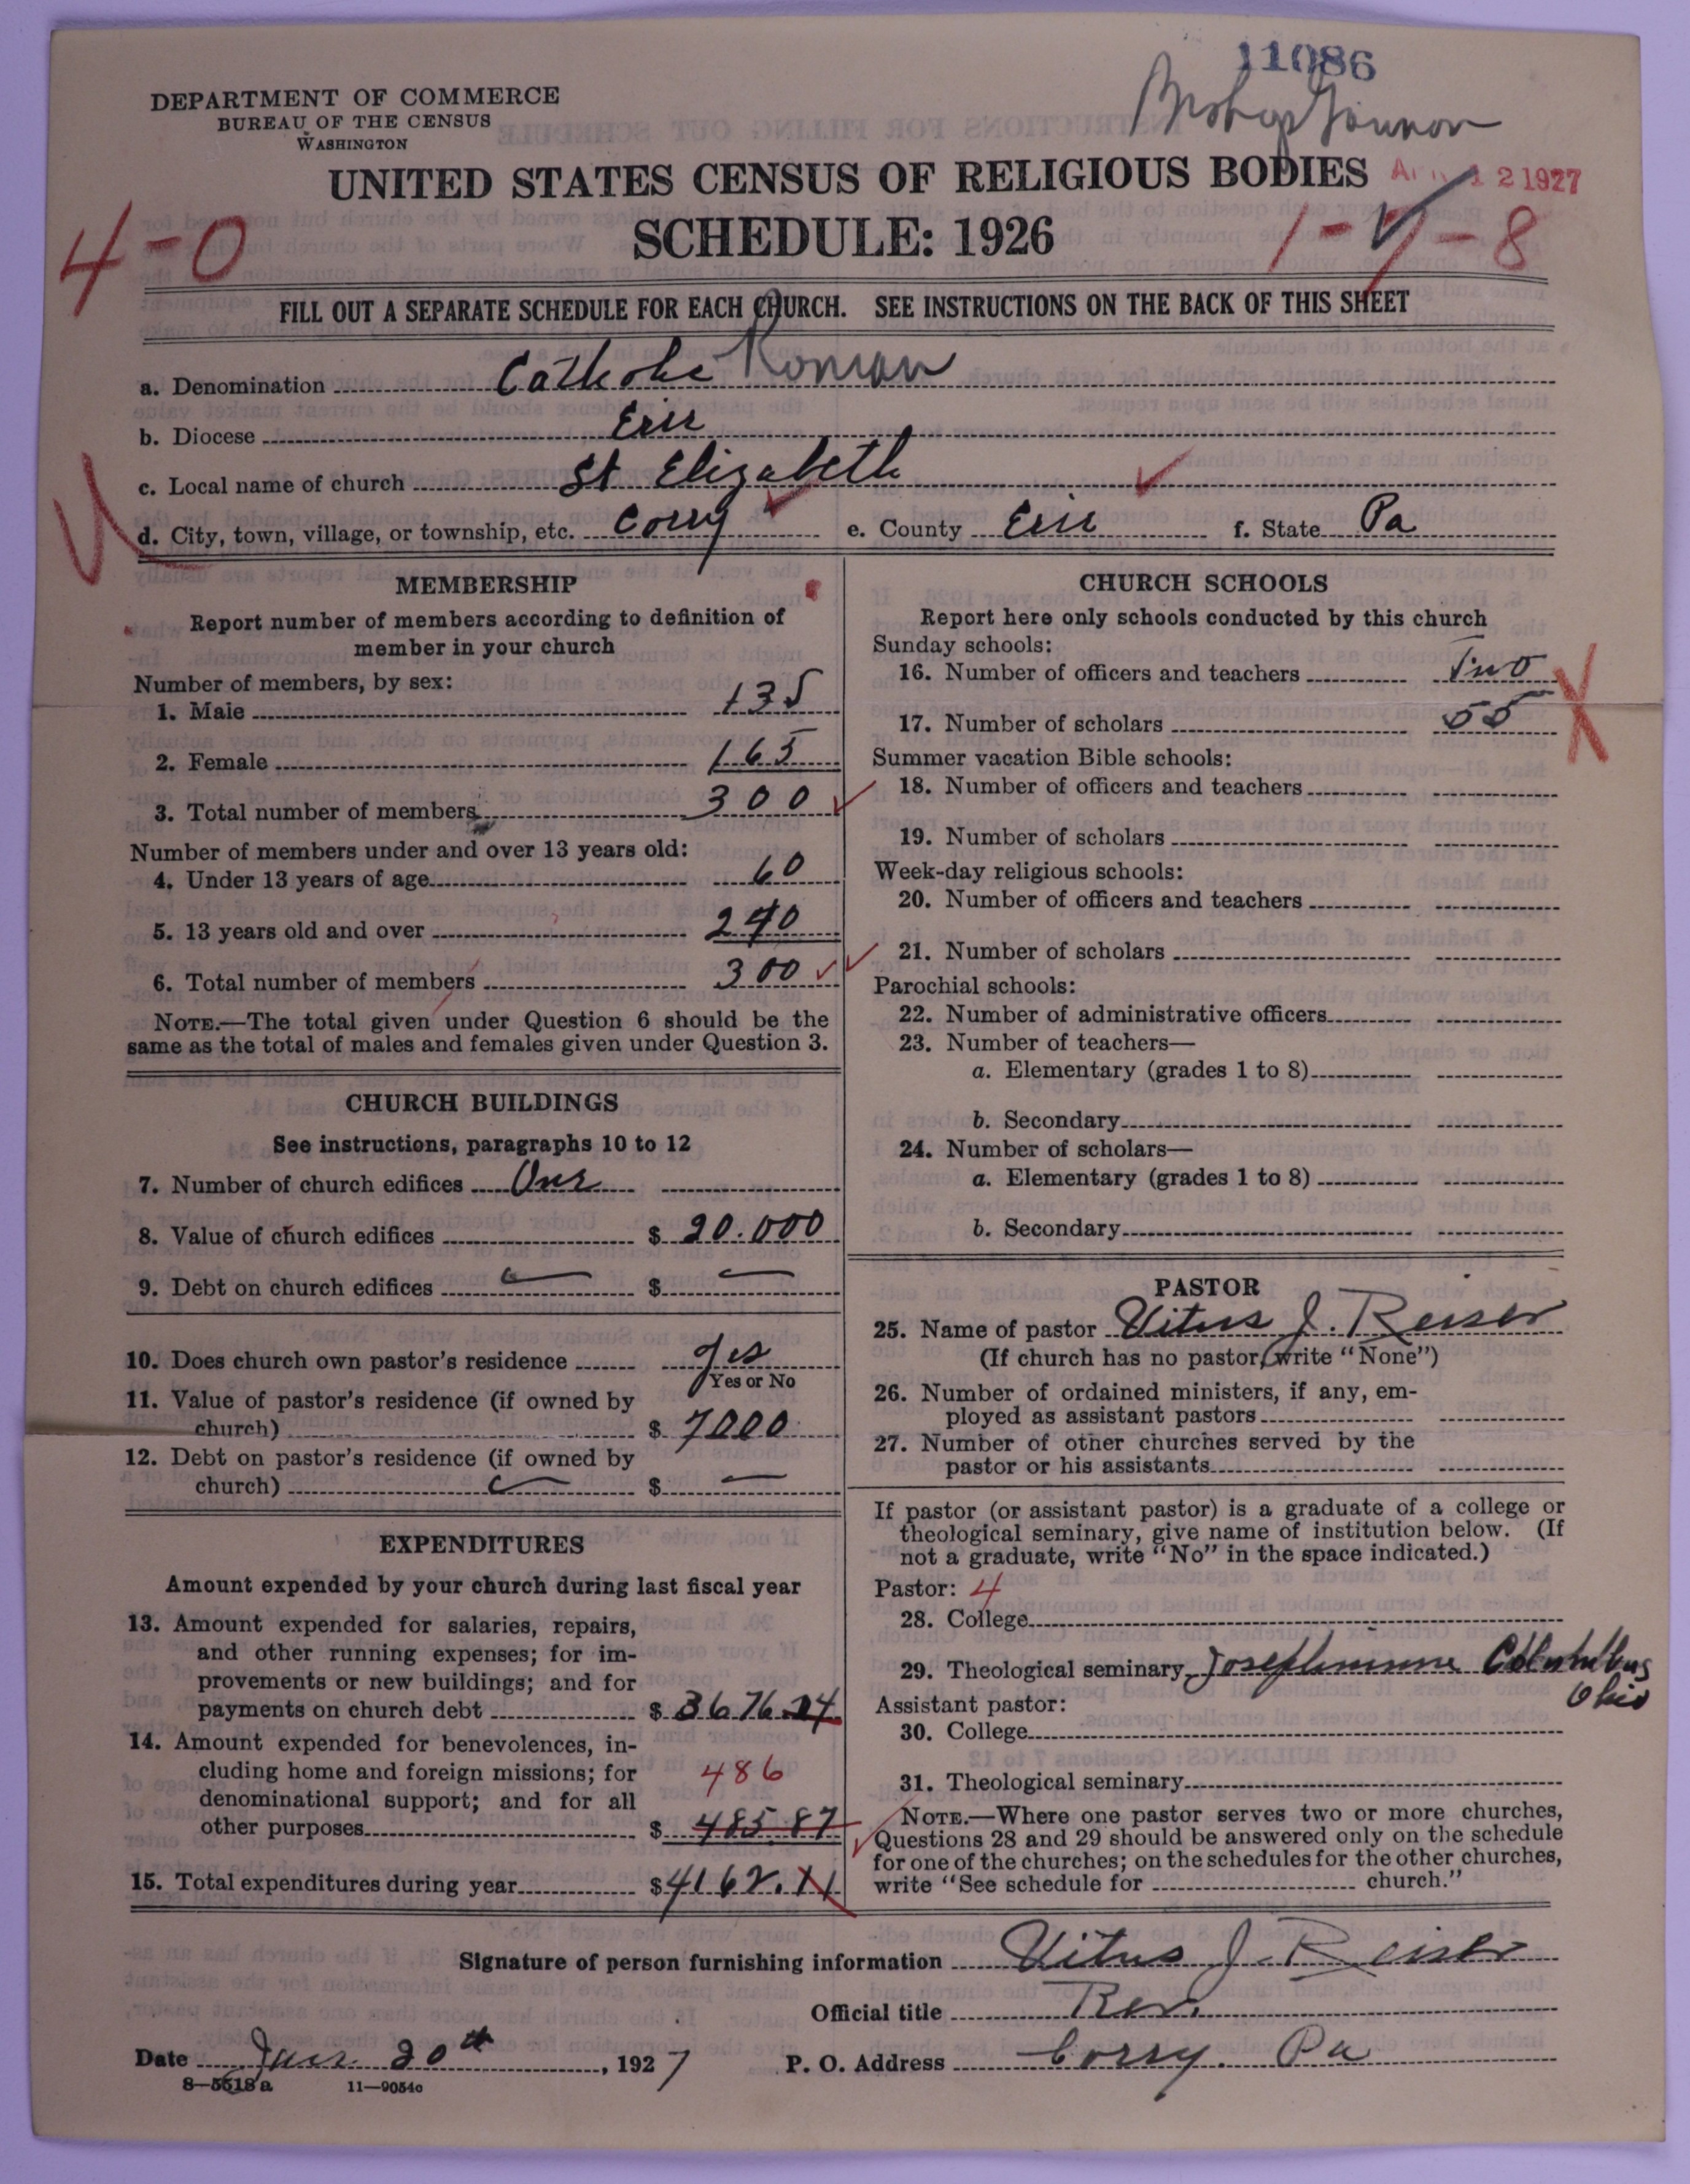 11086
Bishop Gannon
DEPARTMENT OF COMMERCE
BUREAU OF THE CENSUS
WASHINGTON
UNITED STATES CENSUS OF RELIGIOUS BODIES
12 1927
SCHEDULE: 1926
4-0
1-V-8
FILL OUT A SEPARATE SCHEDULE FOR EACH CHURCH. SEE INSTRUCTIONS ON THE BACK OF THIS SHEET
a. Denomination Catholic Roman
b. Diocese Erie
c. Local name of church St Elizabeth
d. City, town, village, or township, etc. Corry e. County Erie f. State Pa
MEMBERSHIP
Report number of members according to definition of
member in your church
Number of members, by sex:
1. Male 135
2. Female 165
3. Total number of members 300
Number of members under and over 13 years old:
4. Under 13 years of age 60
5. 13 years old and over 240
6. Total number of members 300
NOTE.—The total given under Question 6 should be the
same as the total of males and females given under Question 3.
CHURCH BUILDINGS
See instructions, paragraphs 10 to 12
7. Number of church edifices One
8. Value of church edifices $ 20.000
9. Debt on church edifices — $ —
10. Does church own pastor's residence Yes
Yes or No
11. Value of pastor's residence (if owned by
church) $ 7000
12. Debt on pastor's residence (if owned by
church) — $ —
EXPENDITURES
Amount expended by your church during last fiscal year
13. Amount expended for salaries, repairs,
and other running expenses; for im-
provements or new buildings; and for
payments on church debt $ 3676.24
14. Amount expended for benevolences, in-
cluding home and foreign missions; for 486
denominational support; and for all
other purposes $ 485.87
15. Total expenditures during year $ 4162.11
CHURCH SCHOOLS
Report here only schools conducted by this church
Sunday schools:
16. Number of officers and teachers Two
17. Number of scholars 55
Summer vacation Bible schools:
18. Number of officers and teachers
19. Number of scholars
Week-day religious schools:
20. Number of officers and teachers
21. Number of scholars
Parochial schools:
22. Number of administrative officers
23. Number of teachers—
a. Elementary (grades 1 to 8)
b. Secondary
24. Number of scholars—
a. Elementary (grades 1 to 8)
b. Secondary
PASTOR
25. Name of pastor Vitus J. Reiser
(If church has no pastor, write "None")
26. Number of ordained ministers, if any, em-
ployed as assistant pastors
27. Number of other churches served by the
pastor or his assistants
If pastor (or assistant pastor) is a graduate of a college or
theological seminary, give name of institution below. (If
not a graduate, write "No" in the space indicated.)
Pastor: 4
28. College
29. Theological seminary Josephinum Columbus
Ohio
Assistant pastor:
30. College
31. Theological seminary
NOTE.—Where one pastor serves two or more churches,
Questions 28 and 29 should be answered only on the schedule
for one of the churches; on the schedules for the other churches,
write "See schedule for church."
Signature of person furnishing information Vitus J. Reiser
Official title Rev.
Date Jan. 20th, 1927 P. O. Address Corry. Pa
8—5518 a 11—9054c